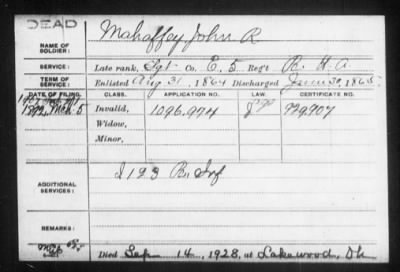 DEAD
NAME OF SOLDIER: Mahaffey, John R
SERVICE: Late rank, Sgt Co. E, 5 Reg't Pa. H A
TERM OF SERVICE: Enlisted Aug 31, 1864 Discharged June 30, 1865
DATE OF FILING. CLASS. APPLICATION NO. LAW. CERTIFICATE NO.
1892, Mch 5 Invalid, 1096.974 729.707
Widow,
Minor,
ADDITIONAL SERVICES: I 123 Pa Inf
REMARKS:
Died Sep 14, 1928, at Lakewood, Oh